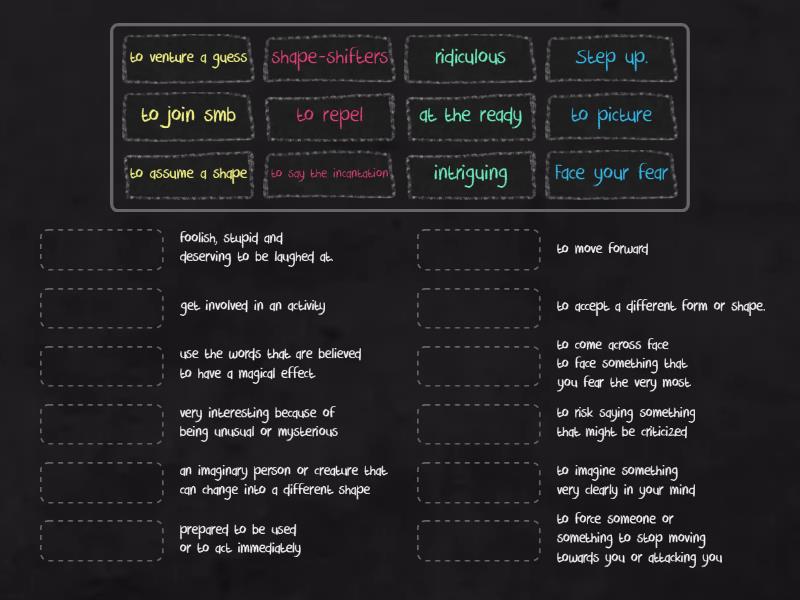 to venture a guess
shape-shifters
ridiculous
Step up.
to join smb
to repel
at the ready
to picture
to assume a shape
to say the incantation
intriguing
Face your fear
foolish, stupid and
deserving to be laughed at.
get involved in an activity
use the words that are believed
to have a magical effect
very interesting because of
being unusual or mysterious
an imaginary person or creature that
can change into a different shape
prepared to be used
or to act immediately
to move forward
to accept a different form or shape.
to come across face
to face something that
you fear the very most
to risk saying something
that might be criticized
to imagine something
very clearly in your mind
to force someone or
something to stop moving
towards you or attacking you